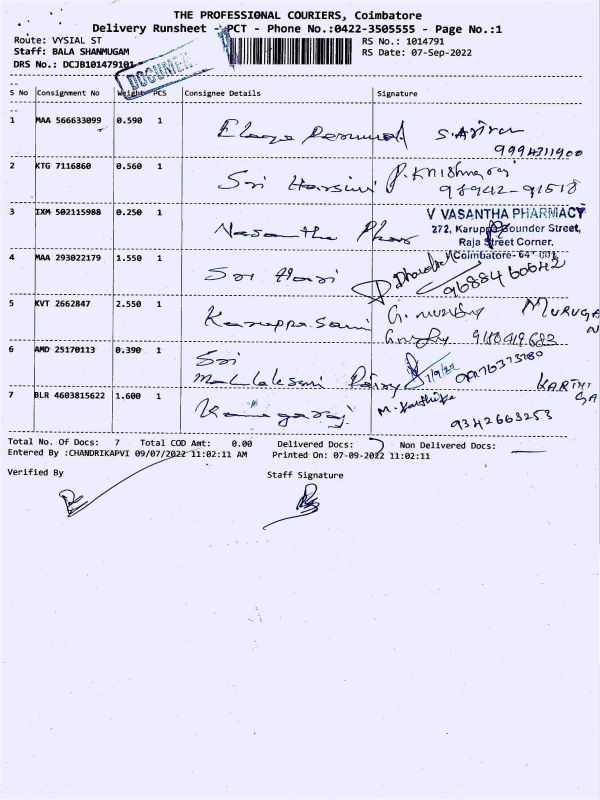 THE PROFESSIONAL COURIERS, Coimbatore
Delivery Runsheet - PCT - Phone No.:0422-3505555 - Page No.:1
Route: VYSIAL ST RS No.: 1014791
Staff: BALA SHANMUGAM RS Date: 07-Sep-2022
DRS No.: DCJB101479101
DOCUMEN
S No Consignment No Weight PCS Consignee Details Signature
1 MAA 566633099 0.590 1 Elaya Perumal
9994711900
2 KTG 7116860 0.560 1 Sri Harsini P. Krishnaraj
98942-91518
3 IXM 502115988 0.250 1 Vasantha Phar V VASANTHA PHARMACY
272, Karuppa Gounder Street,
Raja Street Corner,
Coimbatore- 641 001
4 MAA 293022179 1.550 1 Sri Hari
9688460642
5 KVT 2662847 2.550 1 Karuppasami G. MURUGAN
6 AMD 25170113 0.390 1 Sri
Mahalaksmi Dairy 7/9/22 KARTHI
7 BLR 4603815622 1.600 1 Kanagaraj M. Karthika
9342663253
Total No. Of Docs: 7 Total COD Amt: 0.00 Delivered Docs: 7 Non Delivered Docs: —
Entered By :CHANDRIKAPVI 09/07/2022 11:02:11 AM Printed On: 07-09-2022 11:02:11
Verified By Staff Signature